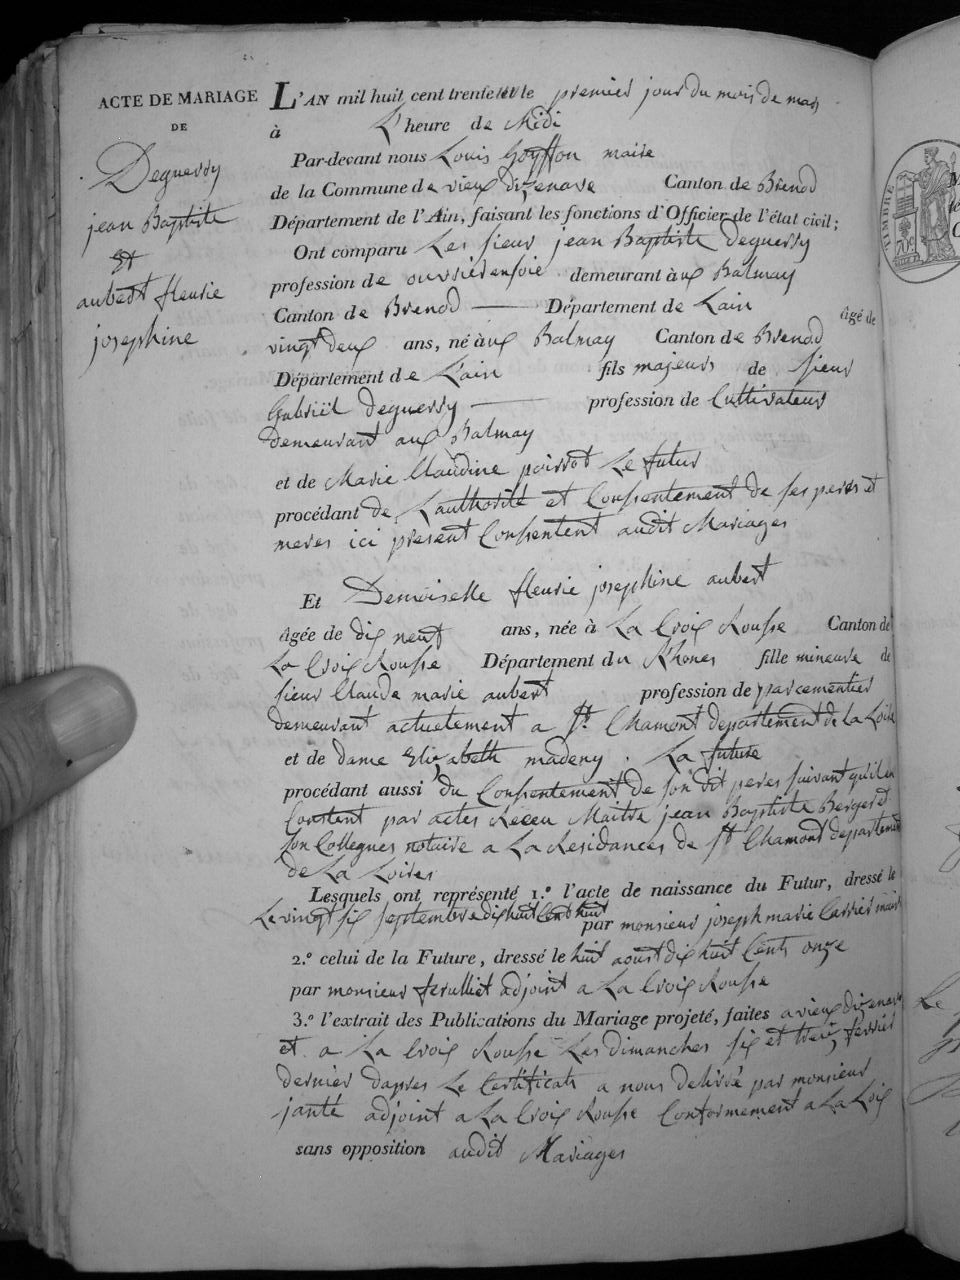 ACTE DE MARIAGE
DE
Deguerry
jean Baptiste
Et
aubert fleurie
josephine
L'AN mil huit cent trente le premier jour du mois de mars
à L'heure de Midi
Par-devant nous Louis Goyffon maire
de la Commune de vieux dizenave Canton de Brenod
Département de l'Ain, faisant les fonctions d'Officier de l'état civil;
Ont comparu Les sieur jean Baptiste deguerry
profession de ouvrier en soie demeurant aux Balmay
Canton de Brenod Département de Lain âgé de
vingt deux ans, né aux Balmay Canton de Brenod
Département de L'ain fils majeur de sieur
Gabriël deguerry profession de Cultivateur
demeurant aux Balmay
et de Marie Claudine poirrot Le futur
procédant de L'authorité et Consentement de ses peres et
meres ici present Consentent audit Mariages
Et Demoiselle fleurie josephine aubert
âgée de dix neuf ans, née à La Croix Rousse Canton de
La Croix Rousse Département du Rhones fille mineure de
sieur Claude marie aubert profession de parcementier
demeurant actuetement a St. Chamont departement de la Loire
et de dame Elizabeth madeny. La future
procédant aussi du Consentement de son dit peres suivant qu'il en
Constent par actes Receu Maitre jean Baptiste Berger et
son Collegues notaire a La Residances de St Chamond departement
de La Loires
Lesquels ont représenté 1.º l'acte de naissance du Futur, dressé le
Le vingt six septembre dix huit Cent huit par monsieur joseph marie Carrier maire
2.º celui de la Future, dressé le huit aoust dix huit Cents onze
par monsieur ferulliet adjoint a La Croix Rousse
3.º l'extrait des Publications du Mariage projeté, faites a vieux dizenave
et a La Croix Rousse Les dimanches six et treize fevrier
dernier dapres Le Certificats a nous delivré par monsieur
janté adjoint a La Croix Rousse Conformement a La Loix
sans opposition audit Mariages
TIMBRE
Le